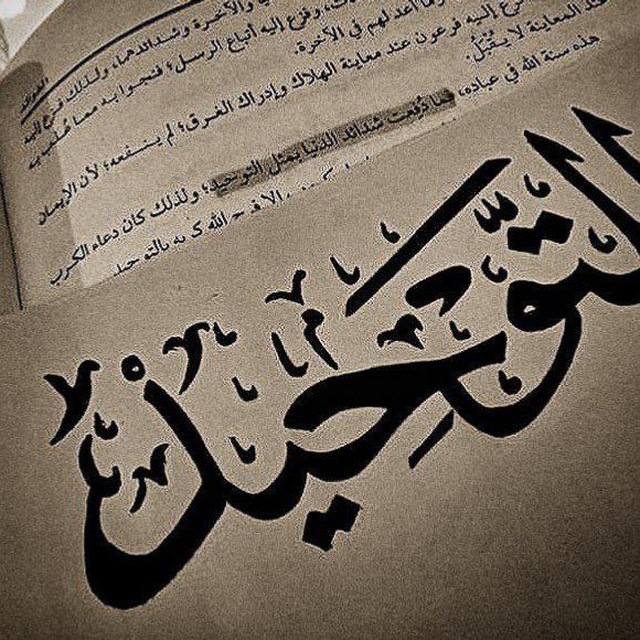 والآخرة وشدائدهما، ولذلك فزع إليه
فزع إليه أتباع الرسل؛ فنجوا به مما عُذب به
أعد لهم في الآخرة.
فزع إليه فرعون عند معاينة الهلاك وإدراك الغرق؛ لم ينفعه؛ لأن الإيمان
عند المعاينة لا يُقْبَلُ.
هذه سنة الله في عباده، فما دُفعت شدائد الدنيا بمثل التوحيد؛ ولذلك كان دعاء الكرب
بالتوحيد
التَّوحِيدُ